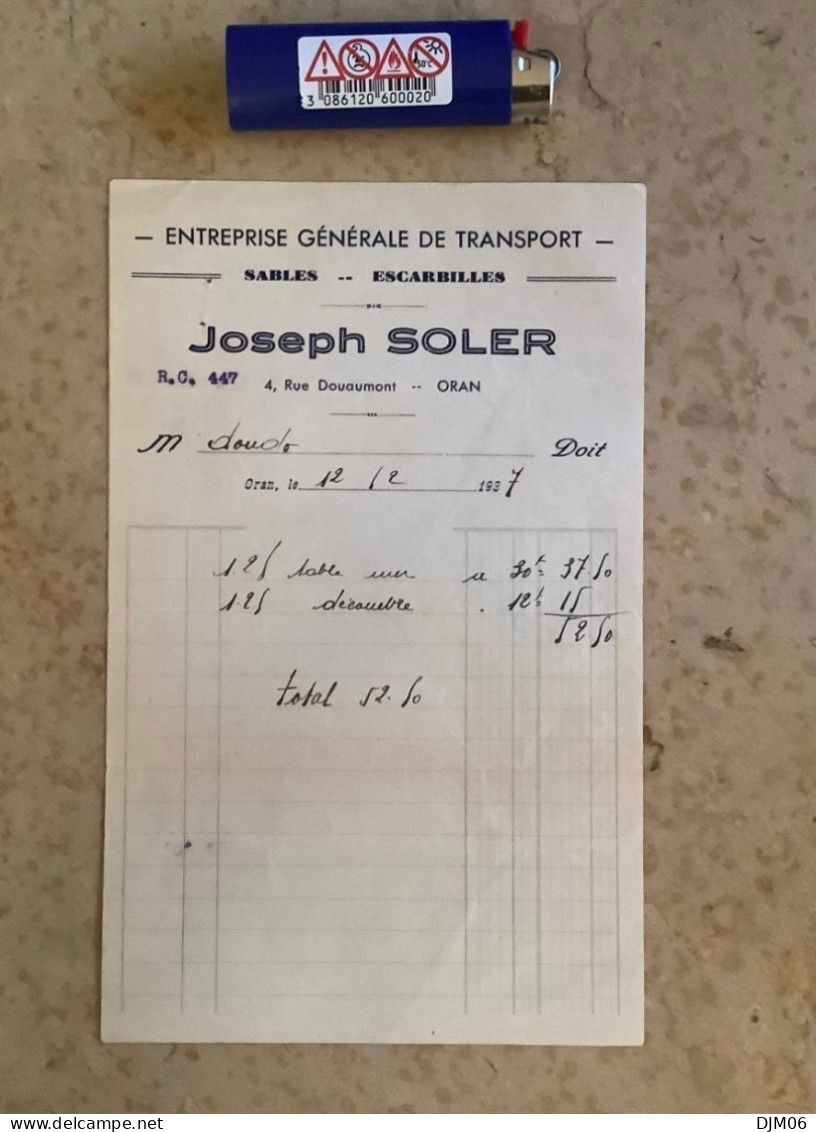 3 086120 600020
— ENTREPRISE GÉNÉRALE DE TRANSPORT —
SABLES -- ESCARBILLES
Joseph SOLER
R.C. 447
4, Rue Douaumont -- ORAN
M Doit
Oran, le 12 / 2 1937
1.25 sable mer a 30f = 37.50
1.25 12f 15
52 50
total 52.50
delcampe.net
DJM06